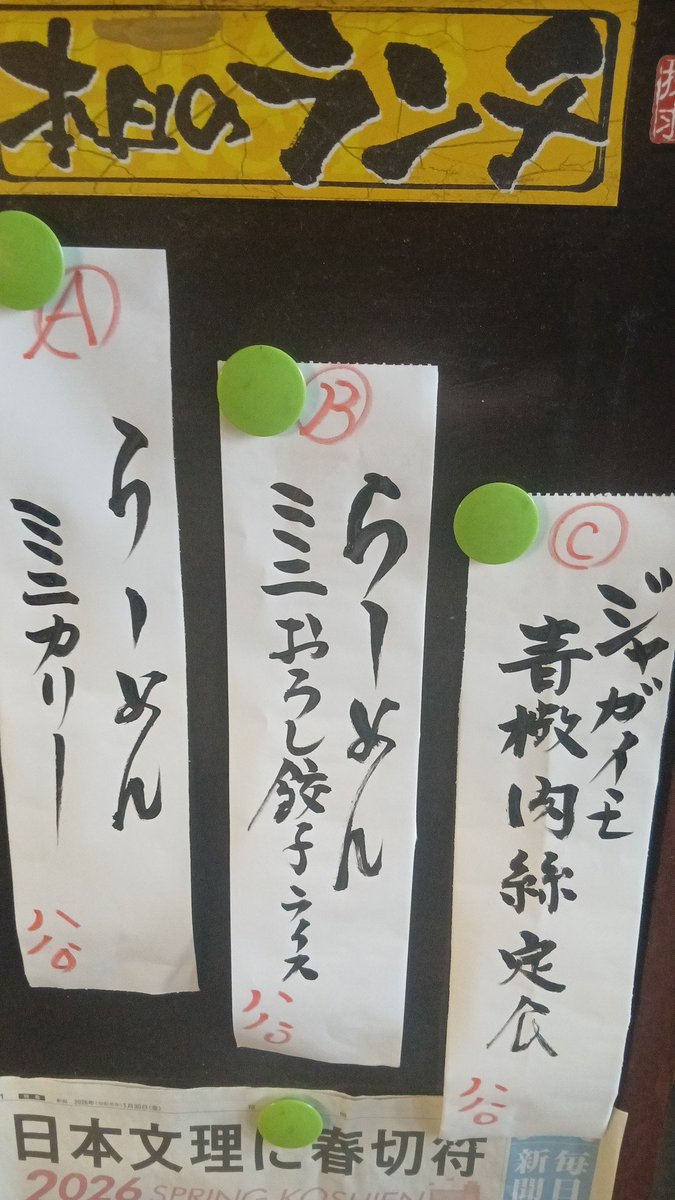 本日のランチ
A
らーめん
ミニカリー
B
らーめん
ミニおろし餃子ライス
C
ジャガイモ
青椒肉絲定食
2026年(令和8年)1月30日(金)
日本文理に春切符
2026 SPRING KOSHIEN
毎日
新聞